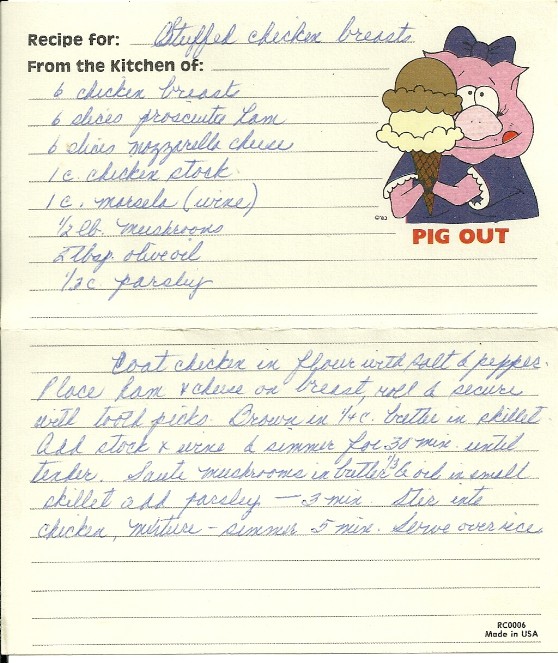 Recipe for: Stuffed chicken breasts
From the Kitchen of:
6 chicken breasts
6 slices prosciutto ham
6 slices mozzarella cheese
1 c. chicken stock
1 c. marsela (wine)
1/2 lb. mushrooms
2 tbsp. olive oil
1/3 c. parsley
©'83
PIG OUT
Coat chicken in flour with salt & pepper.
Place ham & cheese on breast, roll & secure
with tooth picks. Brown in 1/4 c. butter in skillet.
Add stock & wine & simmer for 30 min. until
tender. Saute mushrooms in butter 1/3 & oil in small
skillet add parsley – 3 min. Stir into
chicken, mixture – simmer 5 min. Serve over rice.
RC0006
Made in USA